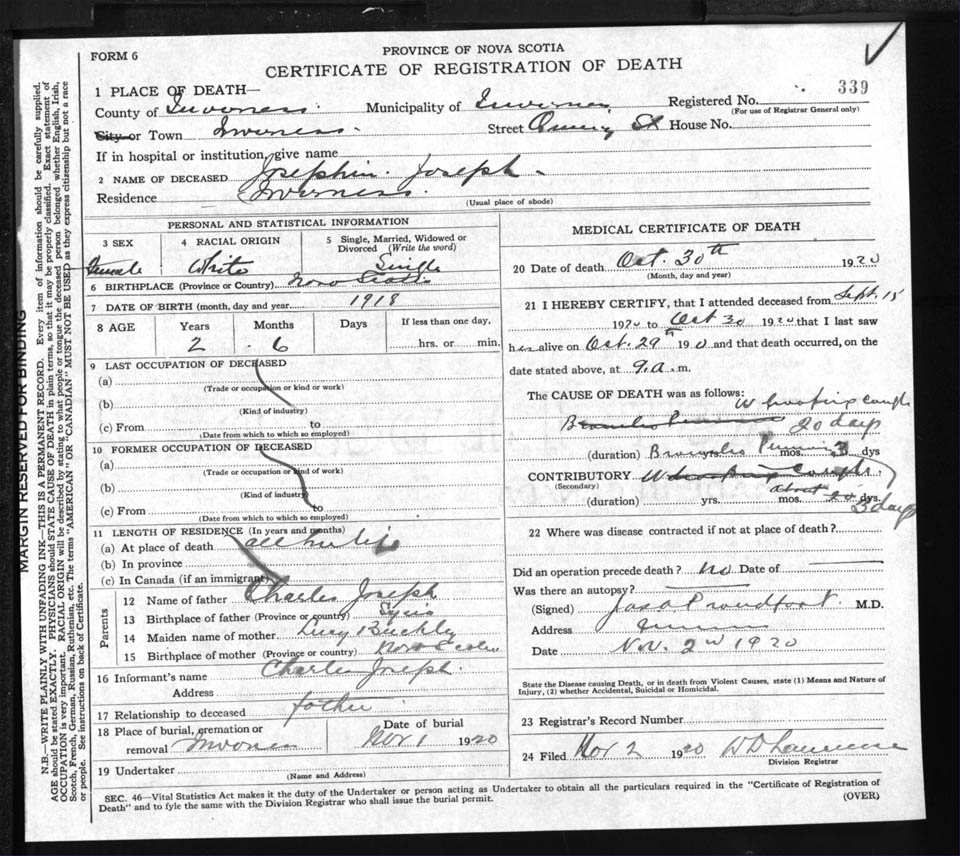 FORM 6
PROVINCE OF NOVA SCOTIA
CERTIFICATE OF REGISTRATION OF DEATH
339
1 PLACE OF DEATH—
County of Inverness. Municipality of Inverness Registered No.
(For use of Registrar General only)
City or Town Inverness. Street St House No.
If in hospital or institution, give name
2 NAME OF DECEASED Josephin. Joseph.
Residence Inverness.
(Usual place of abode)
PERSONAL AND STATISTICAL INFORMATION
3 SEX
Female
4 RACIAL ORIGIN
White
5 Single, Married, Widowed or Divorced (Write the word)
Single
6 BIRTHPLACE (Province or Country) Nova Scotia
7 DATE OF BIRTH (month, day and year) 1918
8 AGE Years Months Days If less than one day,
2 6 hrs. or min.
9 LAST OCCUPATION OF DECEASED
(a)
(Trade or occupation or kind or work)
(b)
(Kind of industry)
(c) From to
(Date from which to which so employed)
10 FORMER OCCUPATION OF DECEASED
(a)
(Trade or occupation or kind of work)
(b)
(Kind of industry)
(c) From to
(Date from which to which so employed)
11 LENGTH OF RESIDENCE (In years and months)
(a) At place of death all her life
(b) In province
(c) In Canada (if an immigrant)
Parents
12 Name of father Charles Joseph
13 Birthplace of father (Province or country)
14 Maiden name of mother Lucy Buckly
15 Birthplace of mother (Province or country) Nova Scotia
16 Informant's name Charles Joseph.
Address
17 Relationship to deceased father
18 Place of burial, cremation or removal Inverness
Date of burial
Nov 1 1920
19 Undertaker
(Name and Address)
MEDICAL CERTIFICATE OF DEATH
20 Date of death Oct. 30th 1920
(Month, day and year)
21 I HEREBY CERTIFY, that I attended deceased from Sept. 15
1920 to Oct 30 1920 that I last saw
her alive on Oct. 29th 1920 and that death occurred, on the
date stated above, at 9.a.m.
The CAUSE OF DEATH was as follows: Whooping cough
20 days
(duration) yrs. mos. 3 dys
CONTRIBUTORY Whooping Cough.
(Secondary)
about
(duration) yrs. mos. 20 dys.
3 days
22 Where was disease contracted if not at place of death?
Did an operation precede death? no Date of
Was there an autopsy?
(Signed) Jas A Proudfoot M.D.
Address
Date Nov. 2nd 1920
State the Disease causing Death, or in death from Violent Causes, state (1) Means and Nature of Injury, (2) whether Accidental, Suicidal or Homicidal.
23 Registrar's Record Number
24 Filed Nov 2 1920
Division Registrar
SEC. 46—Vital Statistics Act makes it the duty of the Undertaker or person acting as Undertaker to obtain all the particulars required in the "Certificate of Registration of
Death" and to fyle the same with the Division Registrar who shall issue the burial permit.
(OVER)
MARGIN RESERVED FOR BINDING
N.B.—WRITE PLAINLY WITH UNFADING INK—THIS IS A PERMANENT RECORD. Every item of information should be carefully supplied.
AGE should be stated EXACTLY. PHYSICIANS should STATE CAUSE OF DEATH in plain terms, so that it may be properly classified. Exact statement of
OCCUPATION is very important. RACIAL ORIGIN will be described by stating to what people or tongue the deceased person belonged whether English, Irish,
Scotch, French, German, Russian, Ruthenian, etc. The terms "AMERICAN" or "CANADIAN" MUST NOT BE USED as they express citizenship but not a race
or people. See instructions on back of Certificate.